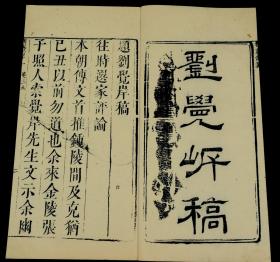 劉覺岸稿
題劉覺岸稿
往時選家評論
本朝傳文首推鍾陵間及克猶
己丑以前勿道也余來金陵張
子照人索覺岸先生文示余幽